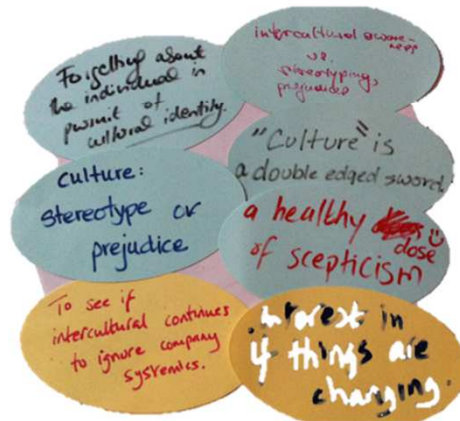 Forgetting about
the individual in
pursuit of
cultural identity.
intercultural aware-
ness
vs.
stereotyping,
prejudices
"Culture" is
a double edged sword
culture:
stereotype or
prejudice
a healthy
dose
of scepticism
To see if
intercultural continues
to ignore company
systemics.
interest in
4 things are
changing.